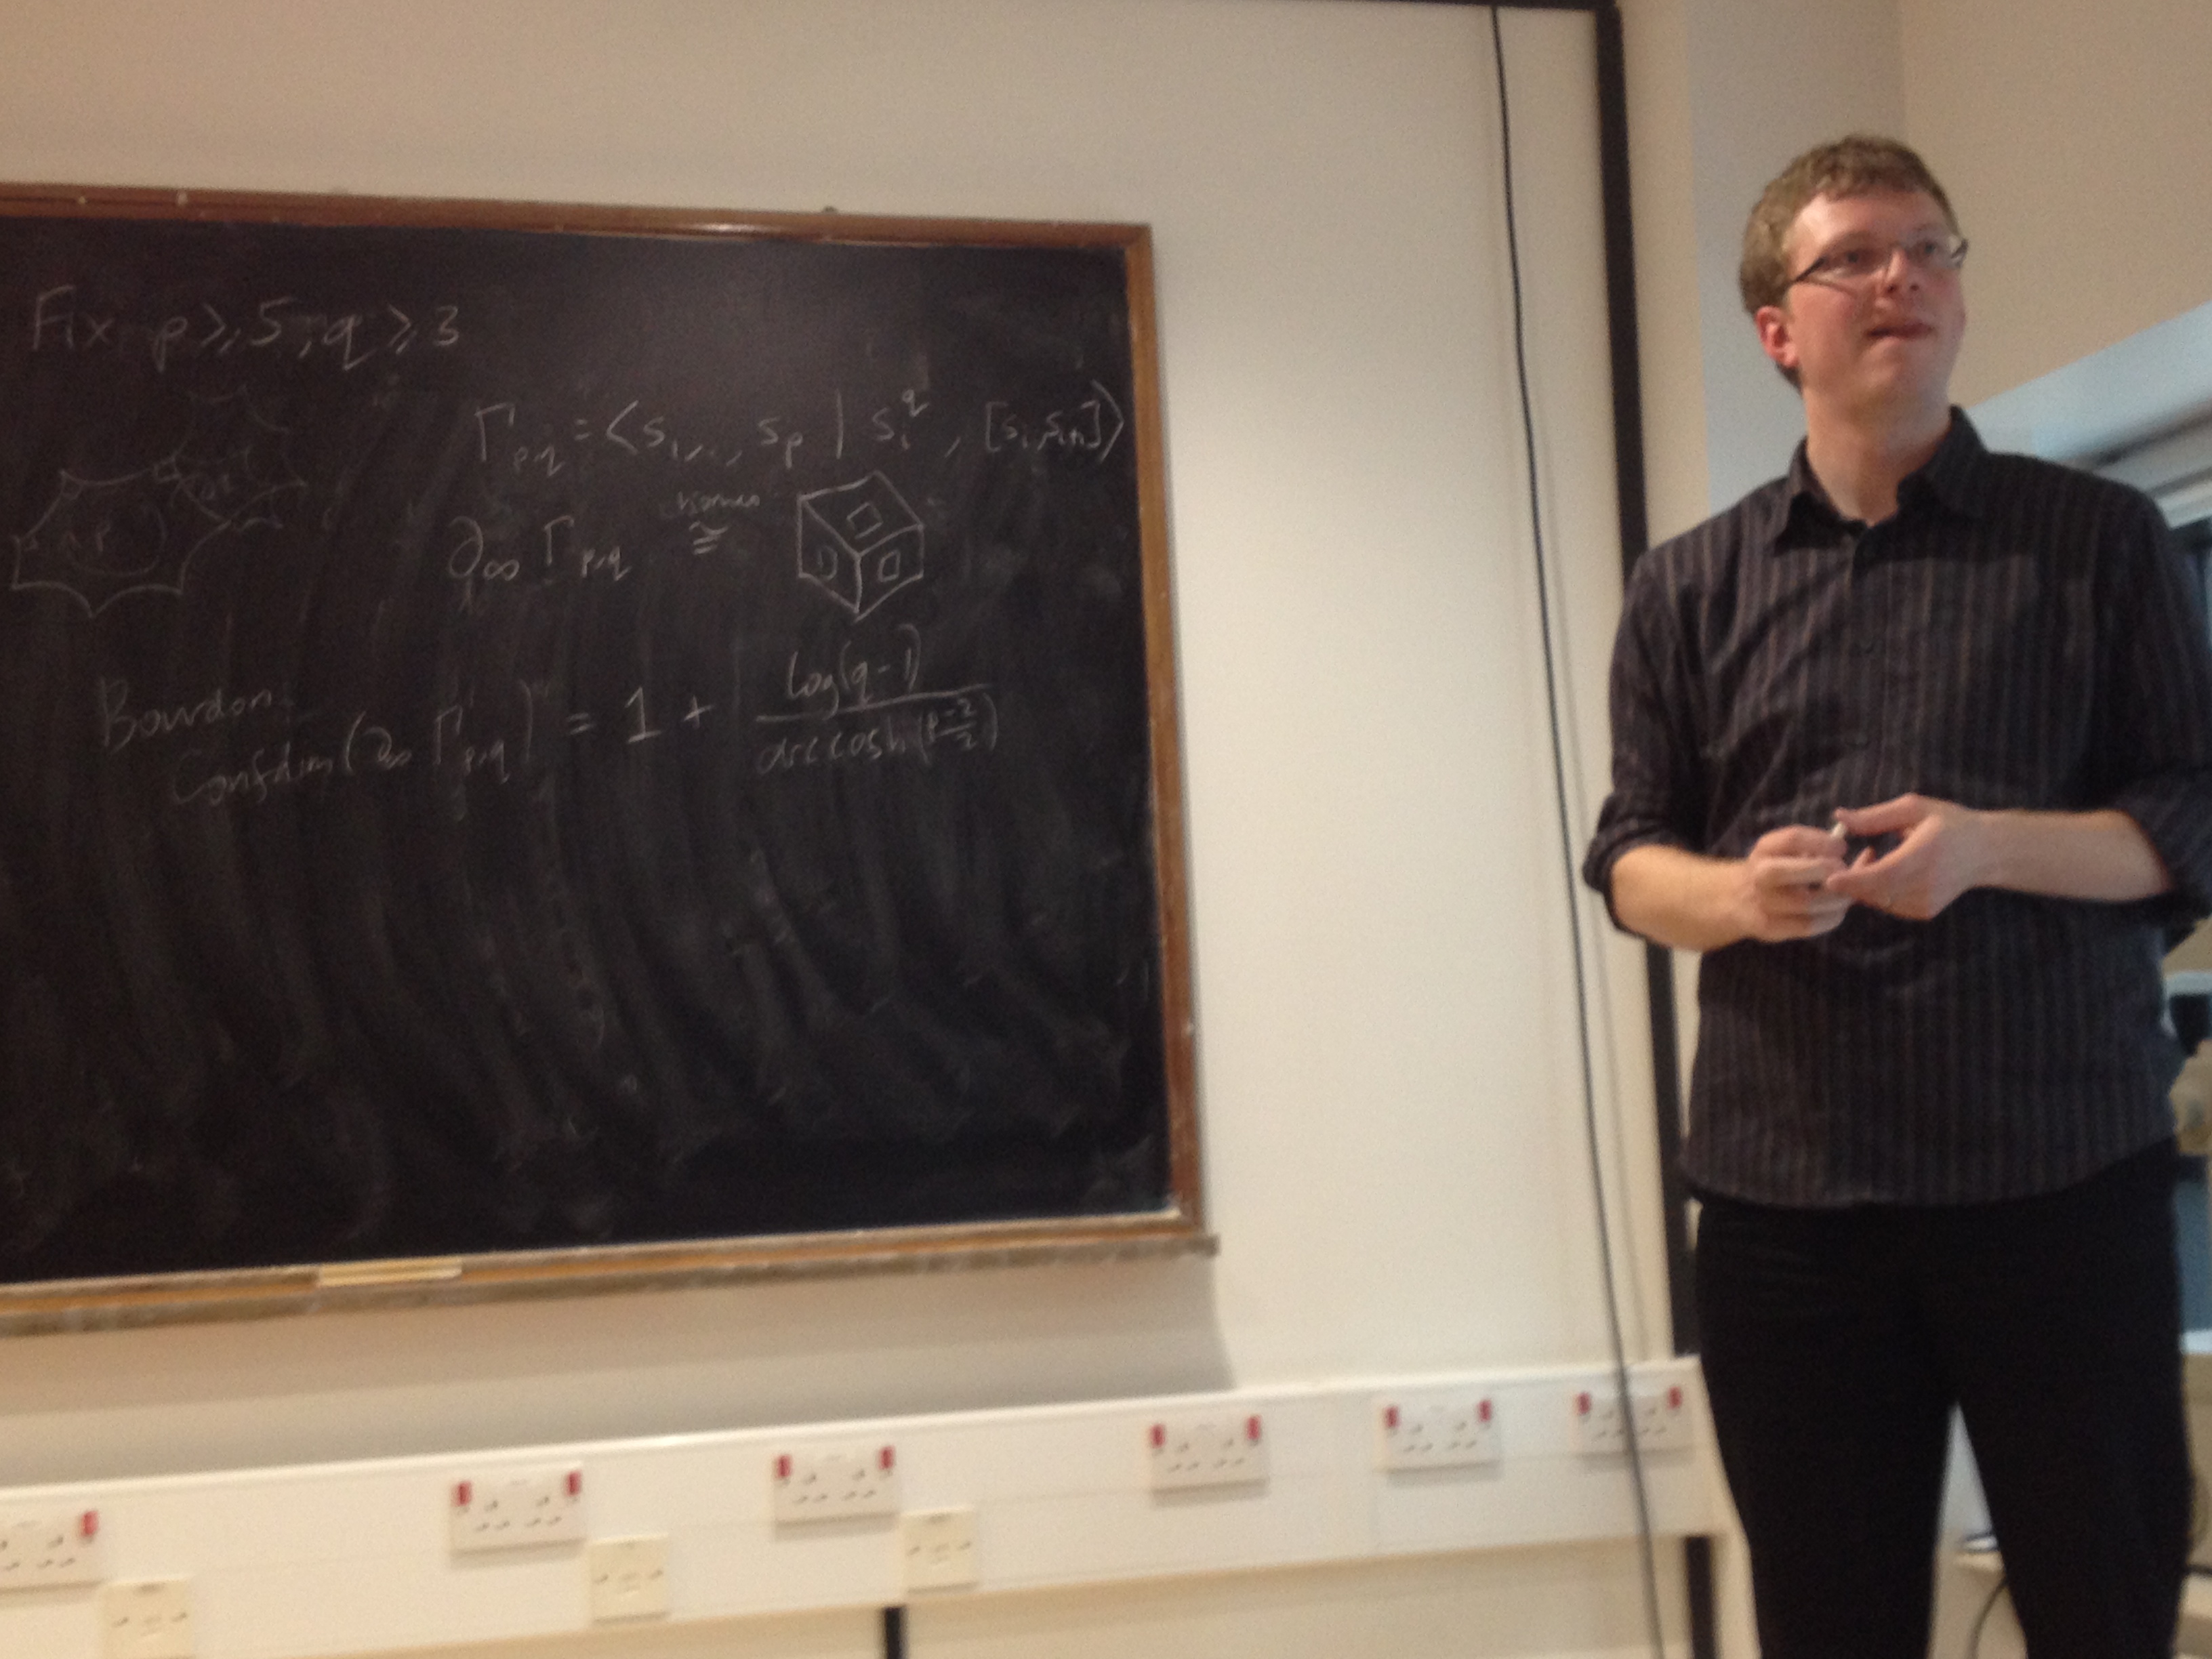 Fix p ≥ 5, q ≥ 3
Γ_{p,q} = ⟨s_1, .., s_p | s_i^q, [s_i, s_{i+1}]⟩
∂_∞ Γ_{p,q} homeo ≅
Bourdon:
Confdim(∂_∞ Γ_{p,q}) = 1 + log(q-1) / arccosh((p-2)/2)
p